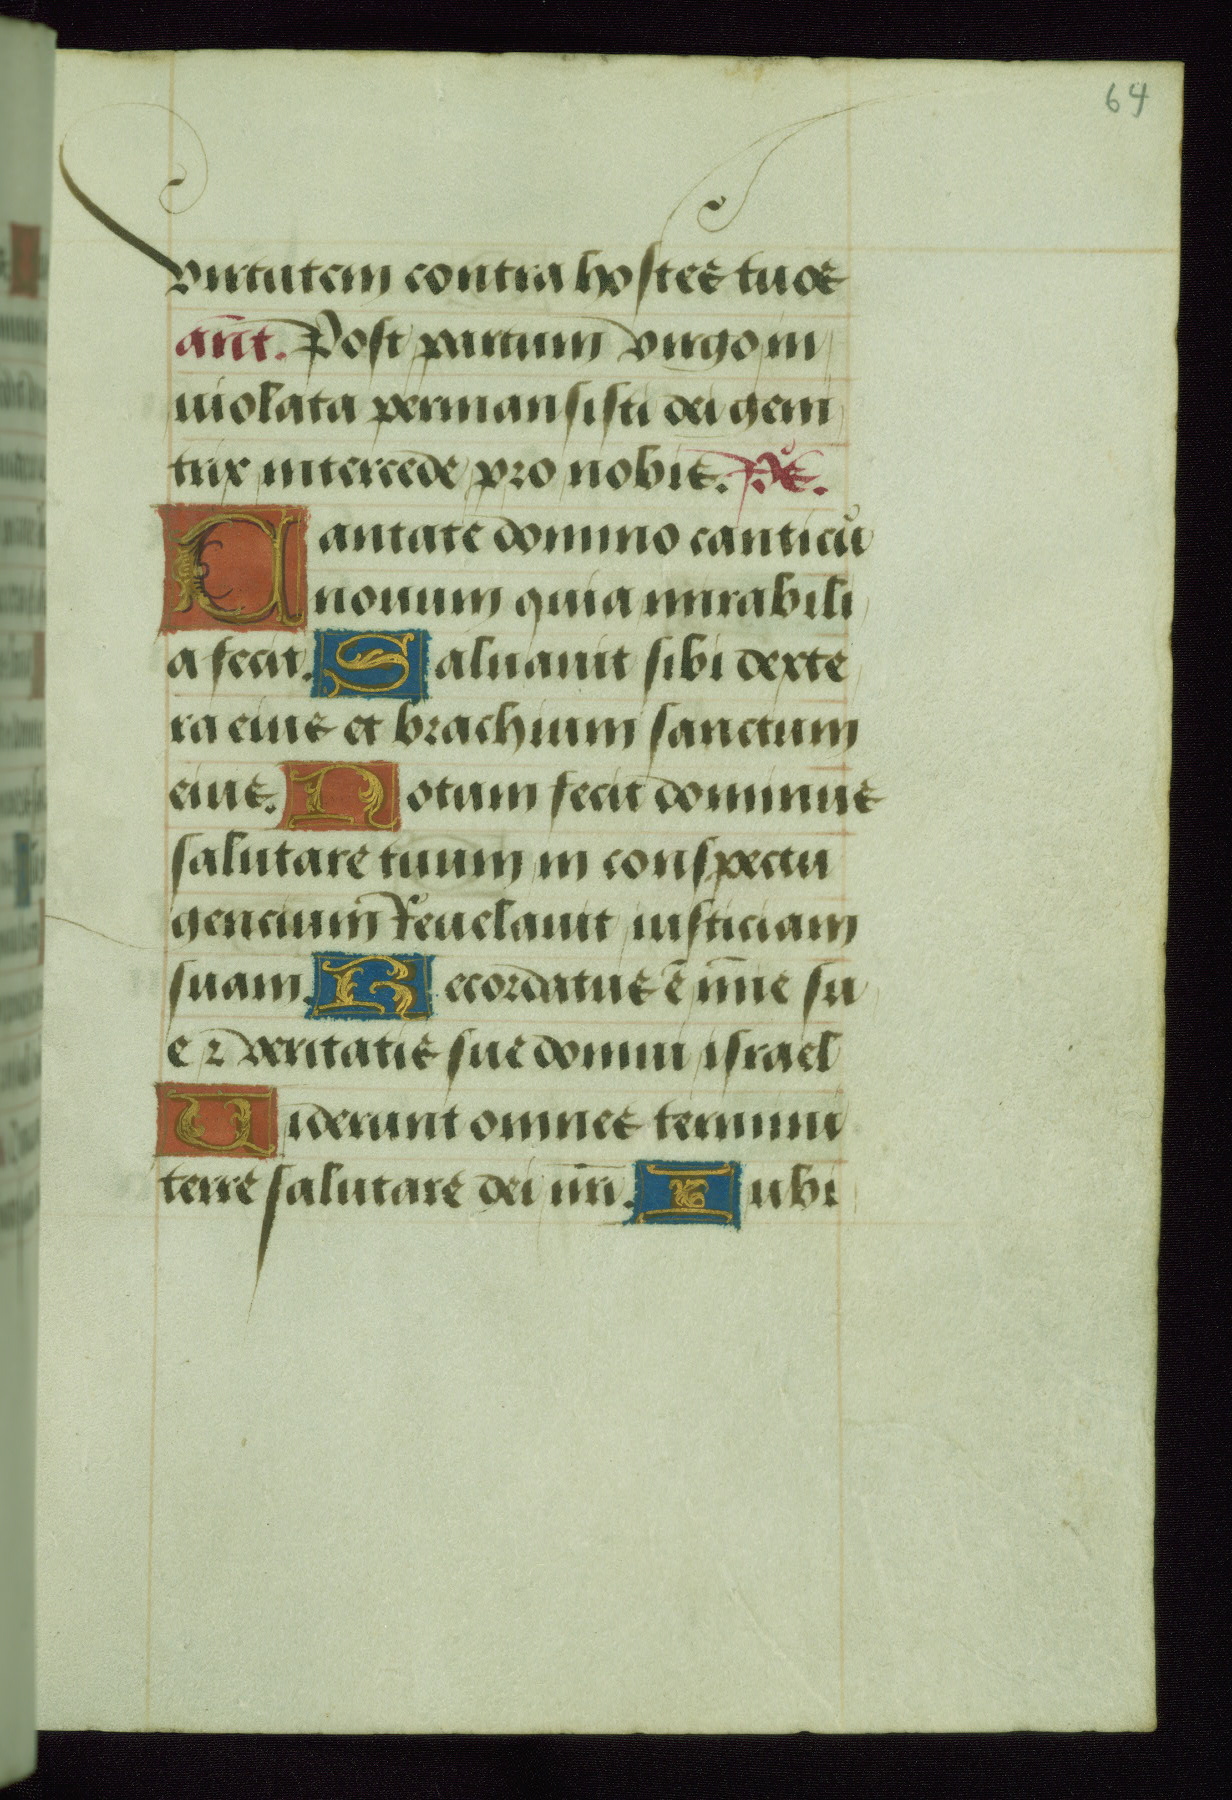 64
virtutem contra hostes tuos
ant̄. Post partum virgo in
uiolata permansisti dei geni
trix intercede pro nobis. p̄s.
Cantate domino canticū
nouum quia mirabili
a fecit. Saluauit sibi dexte
ra eius et brachium sanctum
eius. Notum fecit dominus
salutare tuum in conspectu
gencium Reuelauit iusticiam
suam. Recordatus ē m̄ie su
e ⁊ veritatis sue domui israel
Viderunt omnes termini
terre salutare dei nr̄i. Iubi